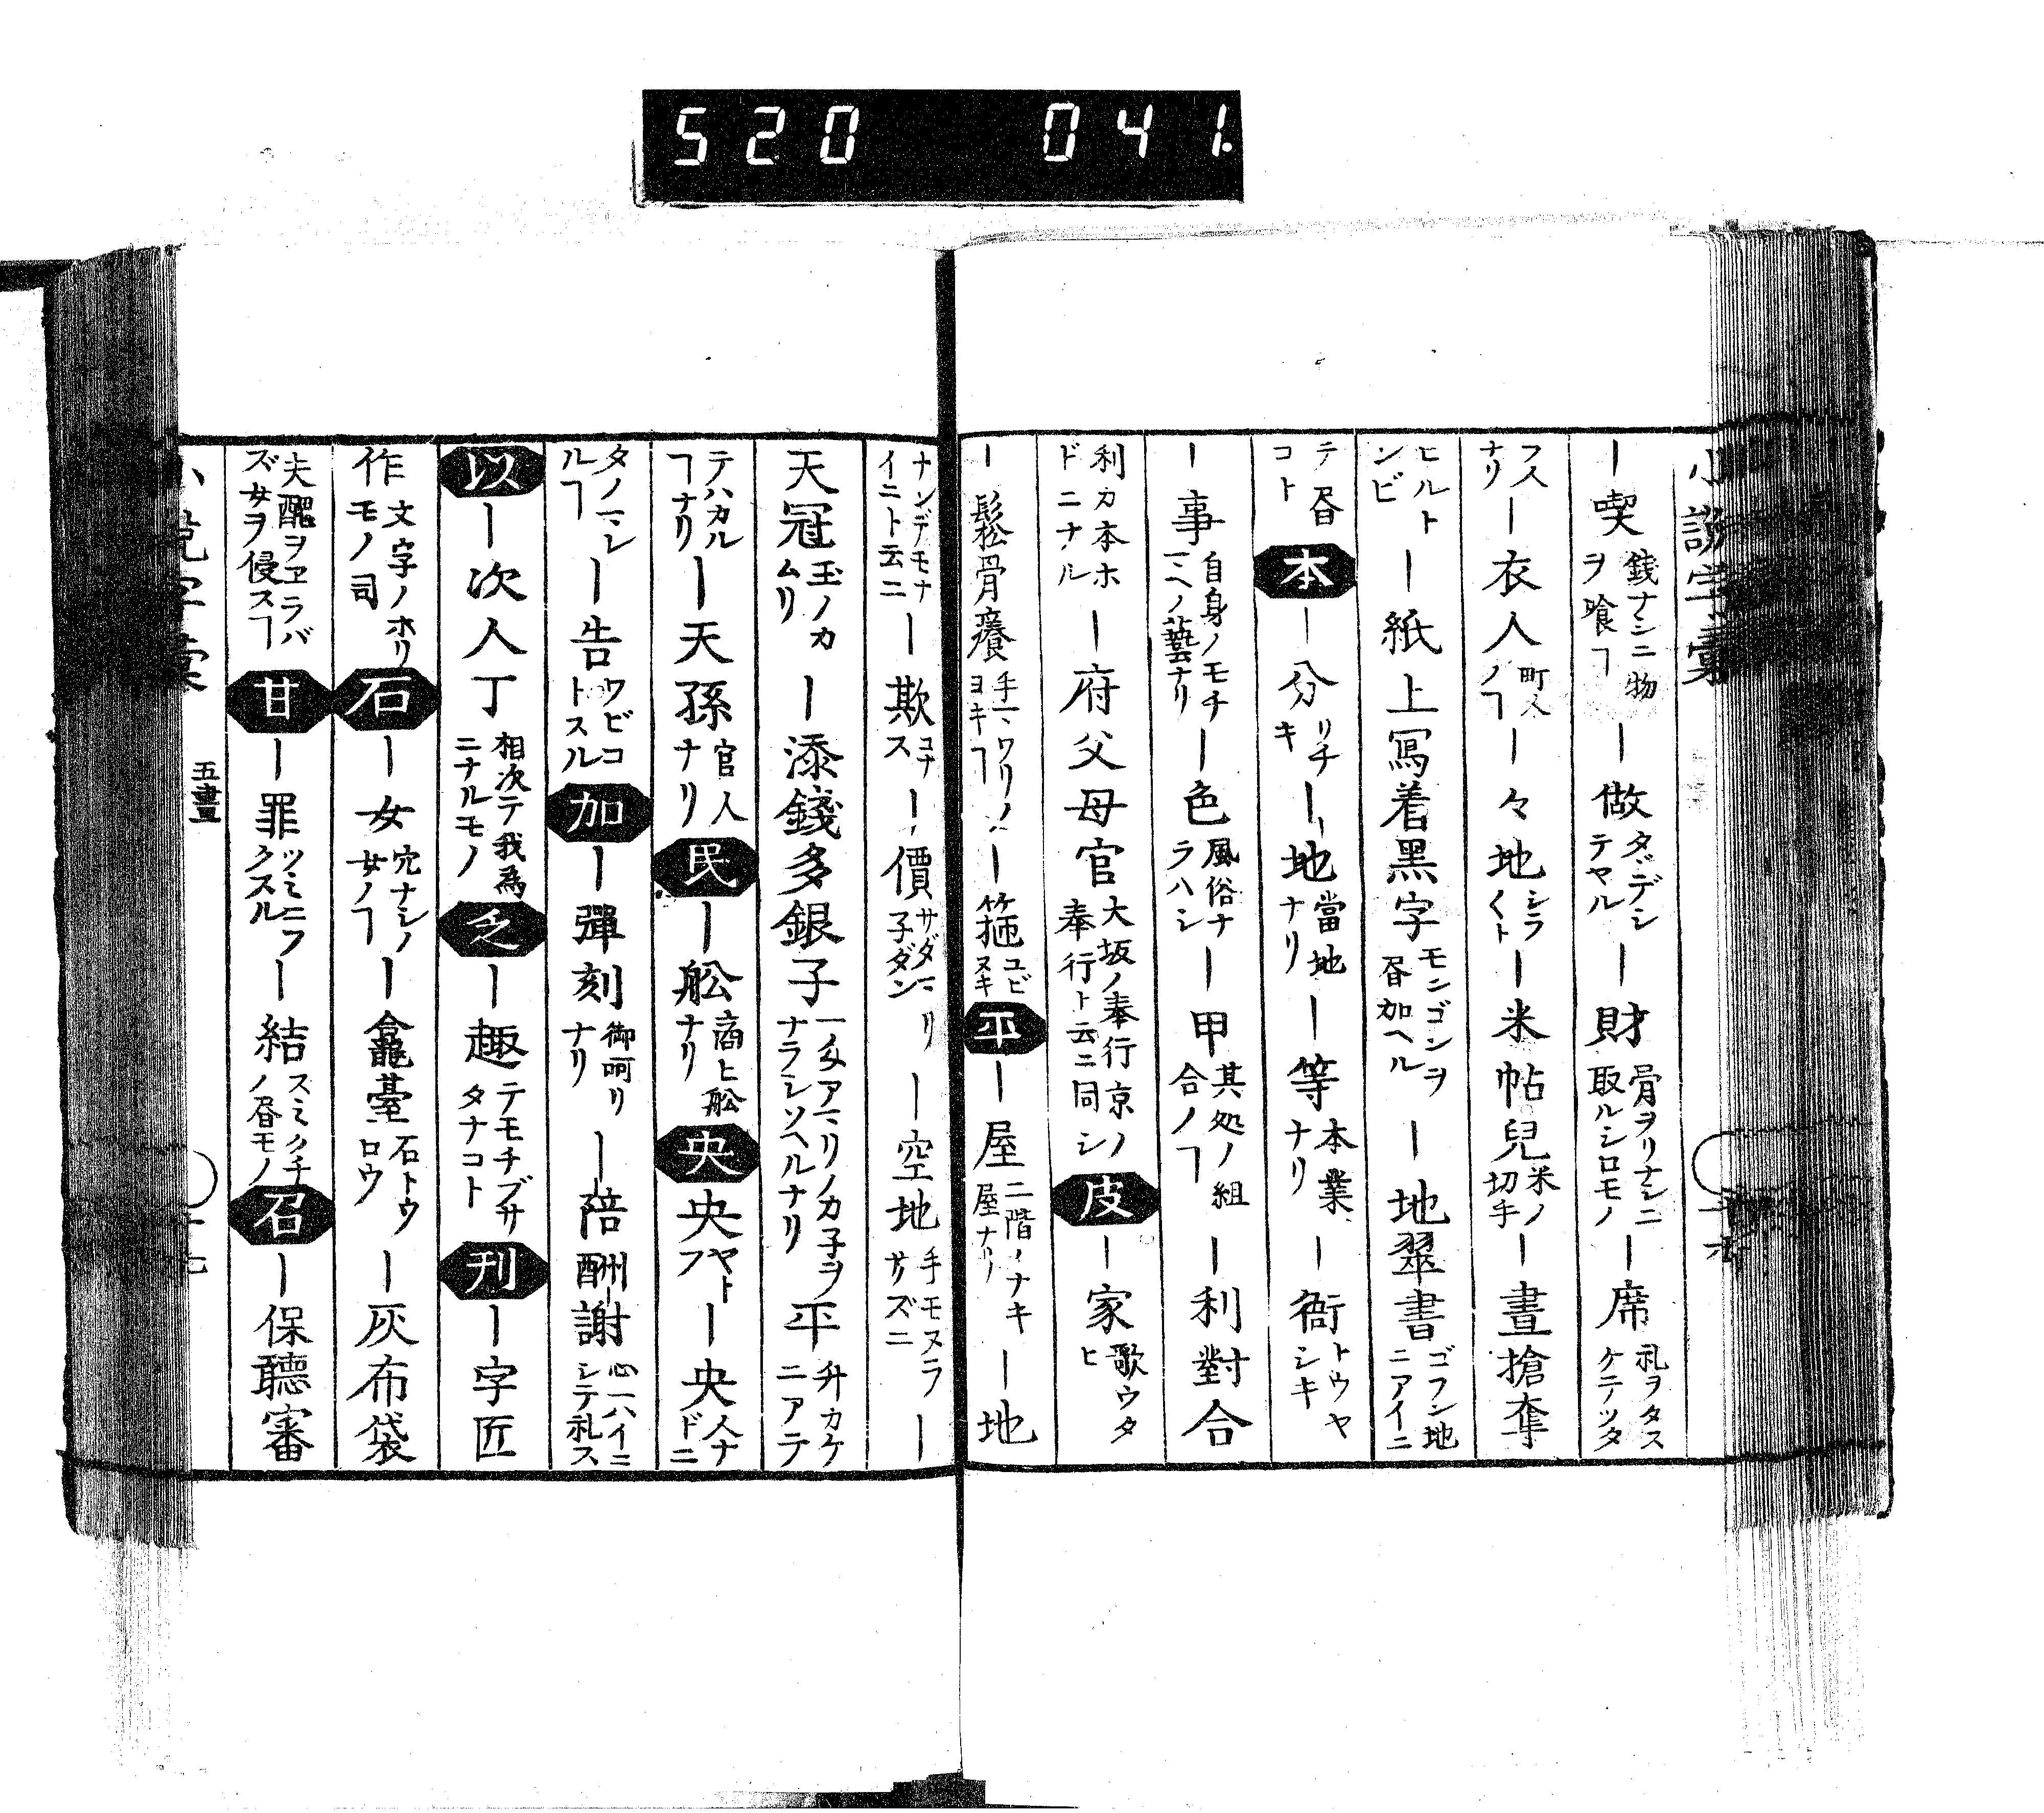 520 041.
小説字彙
ー喫 銭ナシニ物ヲ喰ヿ ー做 タヾデシテヤル ー財 骨ヲリナシニ取ルシロモノ ー席 礼ヲタスケテツタ
フ人ナリ ー衣人 町人ノヿ ー々地 シラ〱ト ー米帖兒 米ノ切手 ー晝搶奪
ヒルトンビ ー紙上冩着黑字 モンゴンヲ昼加ヘル ー地翠書 ゴフン地ニアイニ
テ昼コト 本 ー分 リチキ ー地 當地ナリ ー等 本業ナリ ー衙 トウヤシキ
ー事 自身ノモチマヘノ藝ナリ ー色 風俗ナラハシ ー甲 其処ノ組合ノヿ ー利對合
利カ本ホドニナル ー府父母官 大坂ノ奉行京ノ奉行ト云ニ同シ 皮 ー家 歌ウタヒ
ー鬆骨癢 手マワリノヨキヿ ー箍 ユビヌキ 平 ー屋 二階ノナキ屋ナリ ー地
ナンデモナイニト云ニ ー欺 コナス ー價 サダマリ子ダン ー空地 手モヌラサズニ ー
天冠 玉ノカムリ ー添錢多銀子 一々アマリノカ子ヲナラシソヘルナリ 平 升カケニアテ
テハカルヿナリ ー天孫 官人ナリ 民 ー舩 商ヒ舩ナリ 央 央 ヤトフ ー央 人ナドニ
タノマレルヿ ー告 ワビコトスル 加 ー彈刻 御呵リナリ ー陪酬謝 心一ハイニシテ礼ス
以 ー次人丁 相次テ我為ニナルモノ 乏 ー趣 テモチブサタナコト 刊 ー字匠
作 文字ノホリモノ司 石 ー女 穴ナシノ女ノヿ ー龕臺 石トウロウ ー灰布袋
夫醜ヲヱラバズ女ヲ侵スヿ 甘 ー罪 ツミニフクスル ー結 スミクチノ昼モノ 召 ー保聽審
小説字彙 五畫 十七